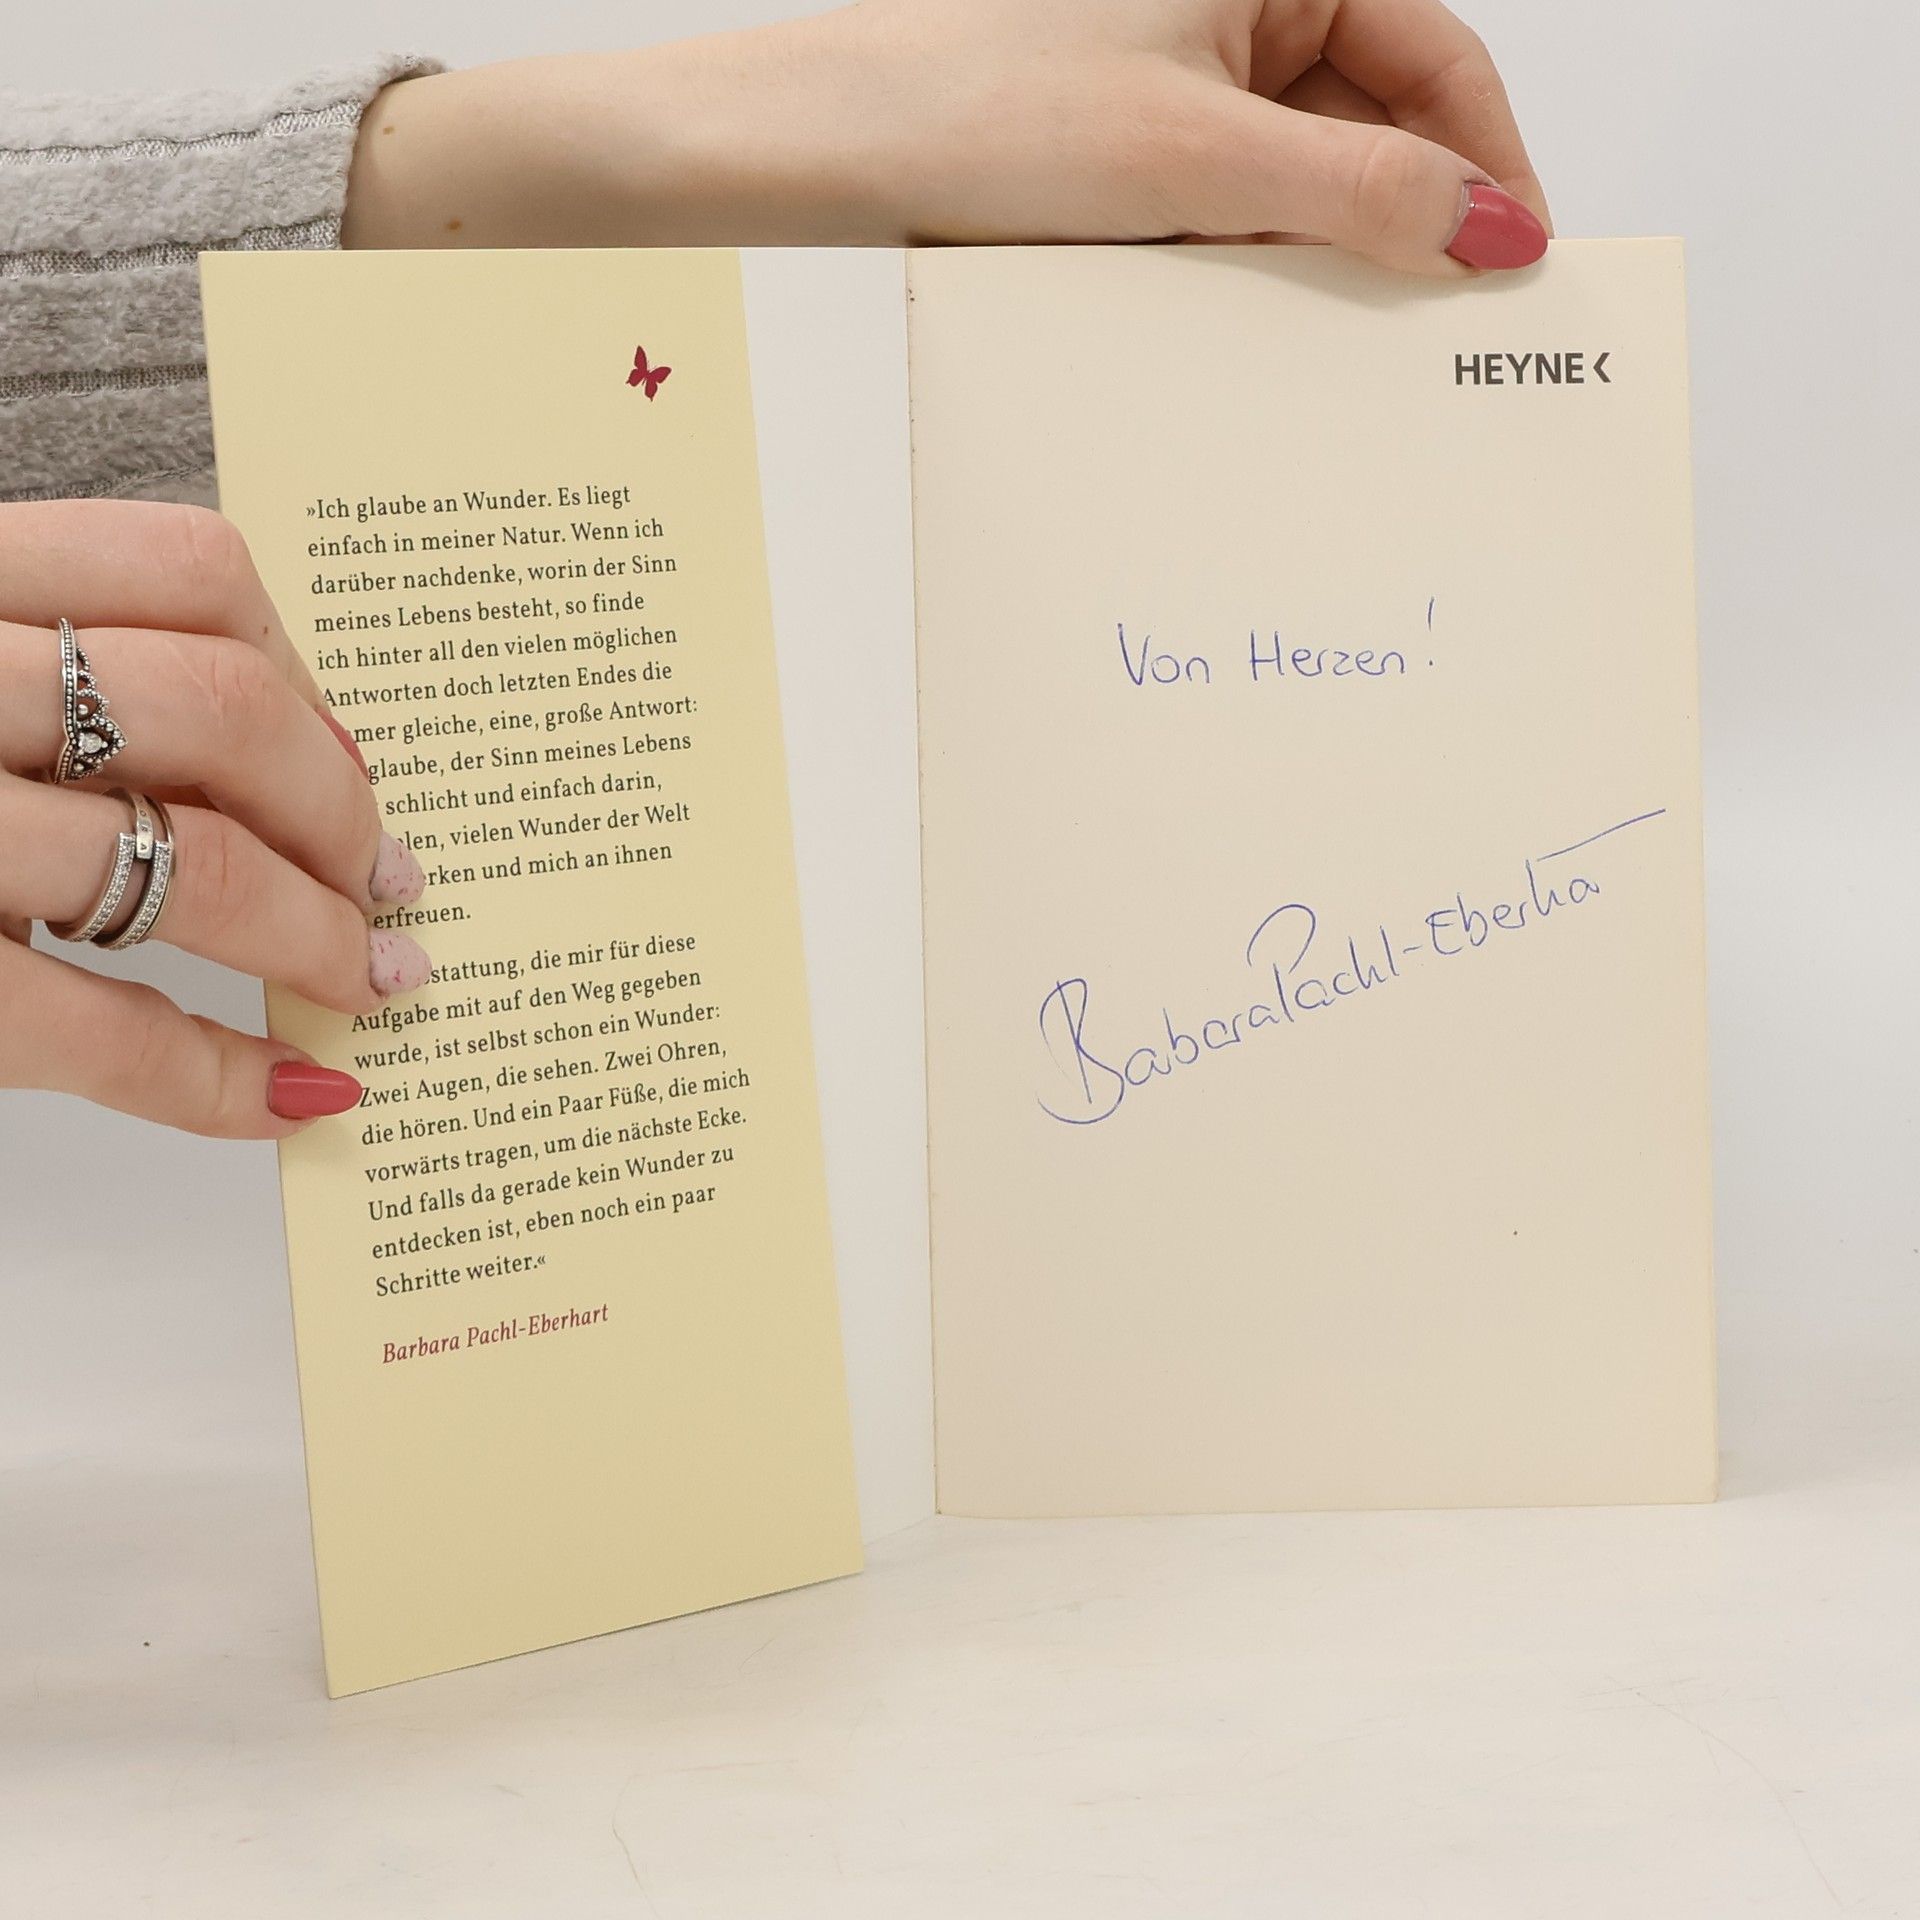 »Ich glaube an Wunder. Es liegt
einfach in meiner Natur. Wenn ich
darüber nachdenke, worin der Sinn
meines Lebens besteht, so finde
ich hinter all den vielen möglichen
Antworten doch letzten Endes die
gleiche, eine, große Antwort:
glaube, der Sinn meines Lebens
schlicht und einfach darin,
vielen Wunder der Welt
und mich an ihnen
erfreuen.
die mir für diese
Aufgabe mit auf den Weg gegeben
wurde, ist selbst schon ein Wunder:
Zwei Augen, die sehen. Zwei Ohren,
die hören. Und ein Paar Füße, die mich
vorwärts tragen, um die nächste Ecke.
Und falls da gerade kein Wunder zu
entdecken ist, eben noch ein paar
Schritte weiter.«
Barbara Pachl-Eberhart
HEYNE
Von Herzen!
Barbara Pachl-Eberhart